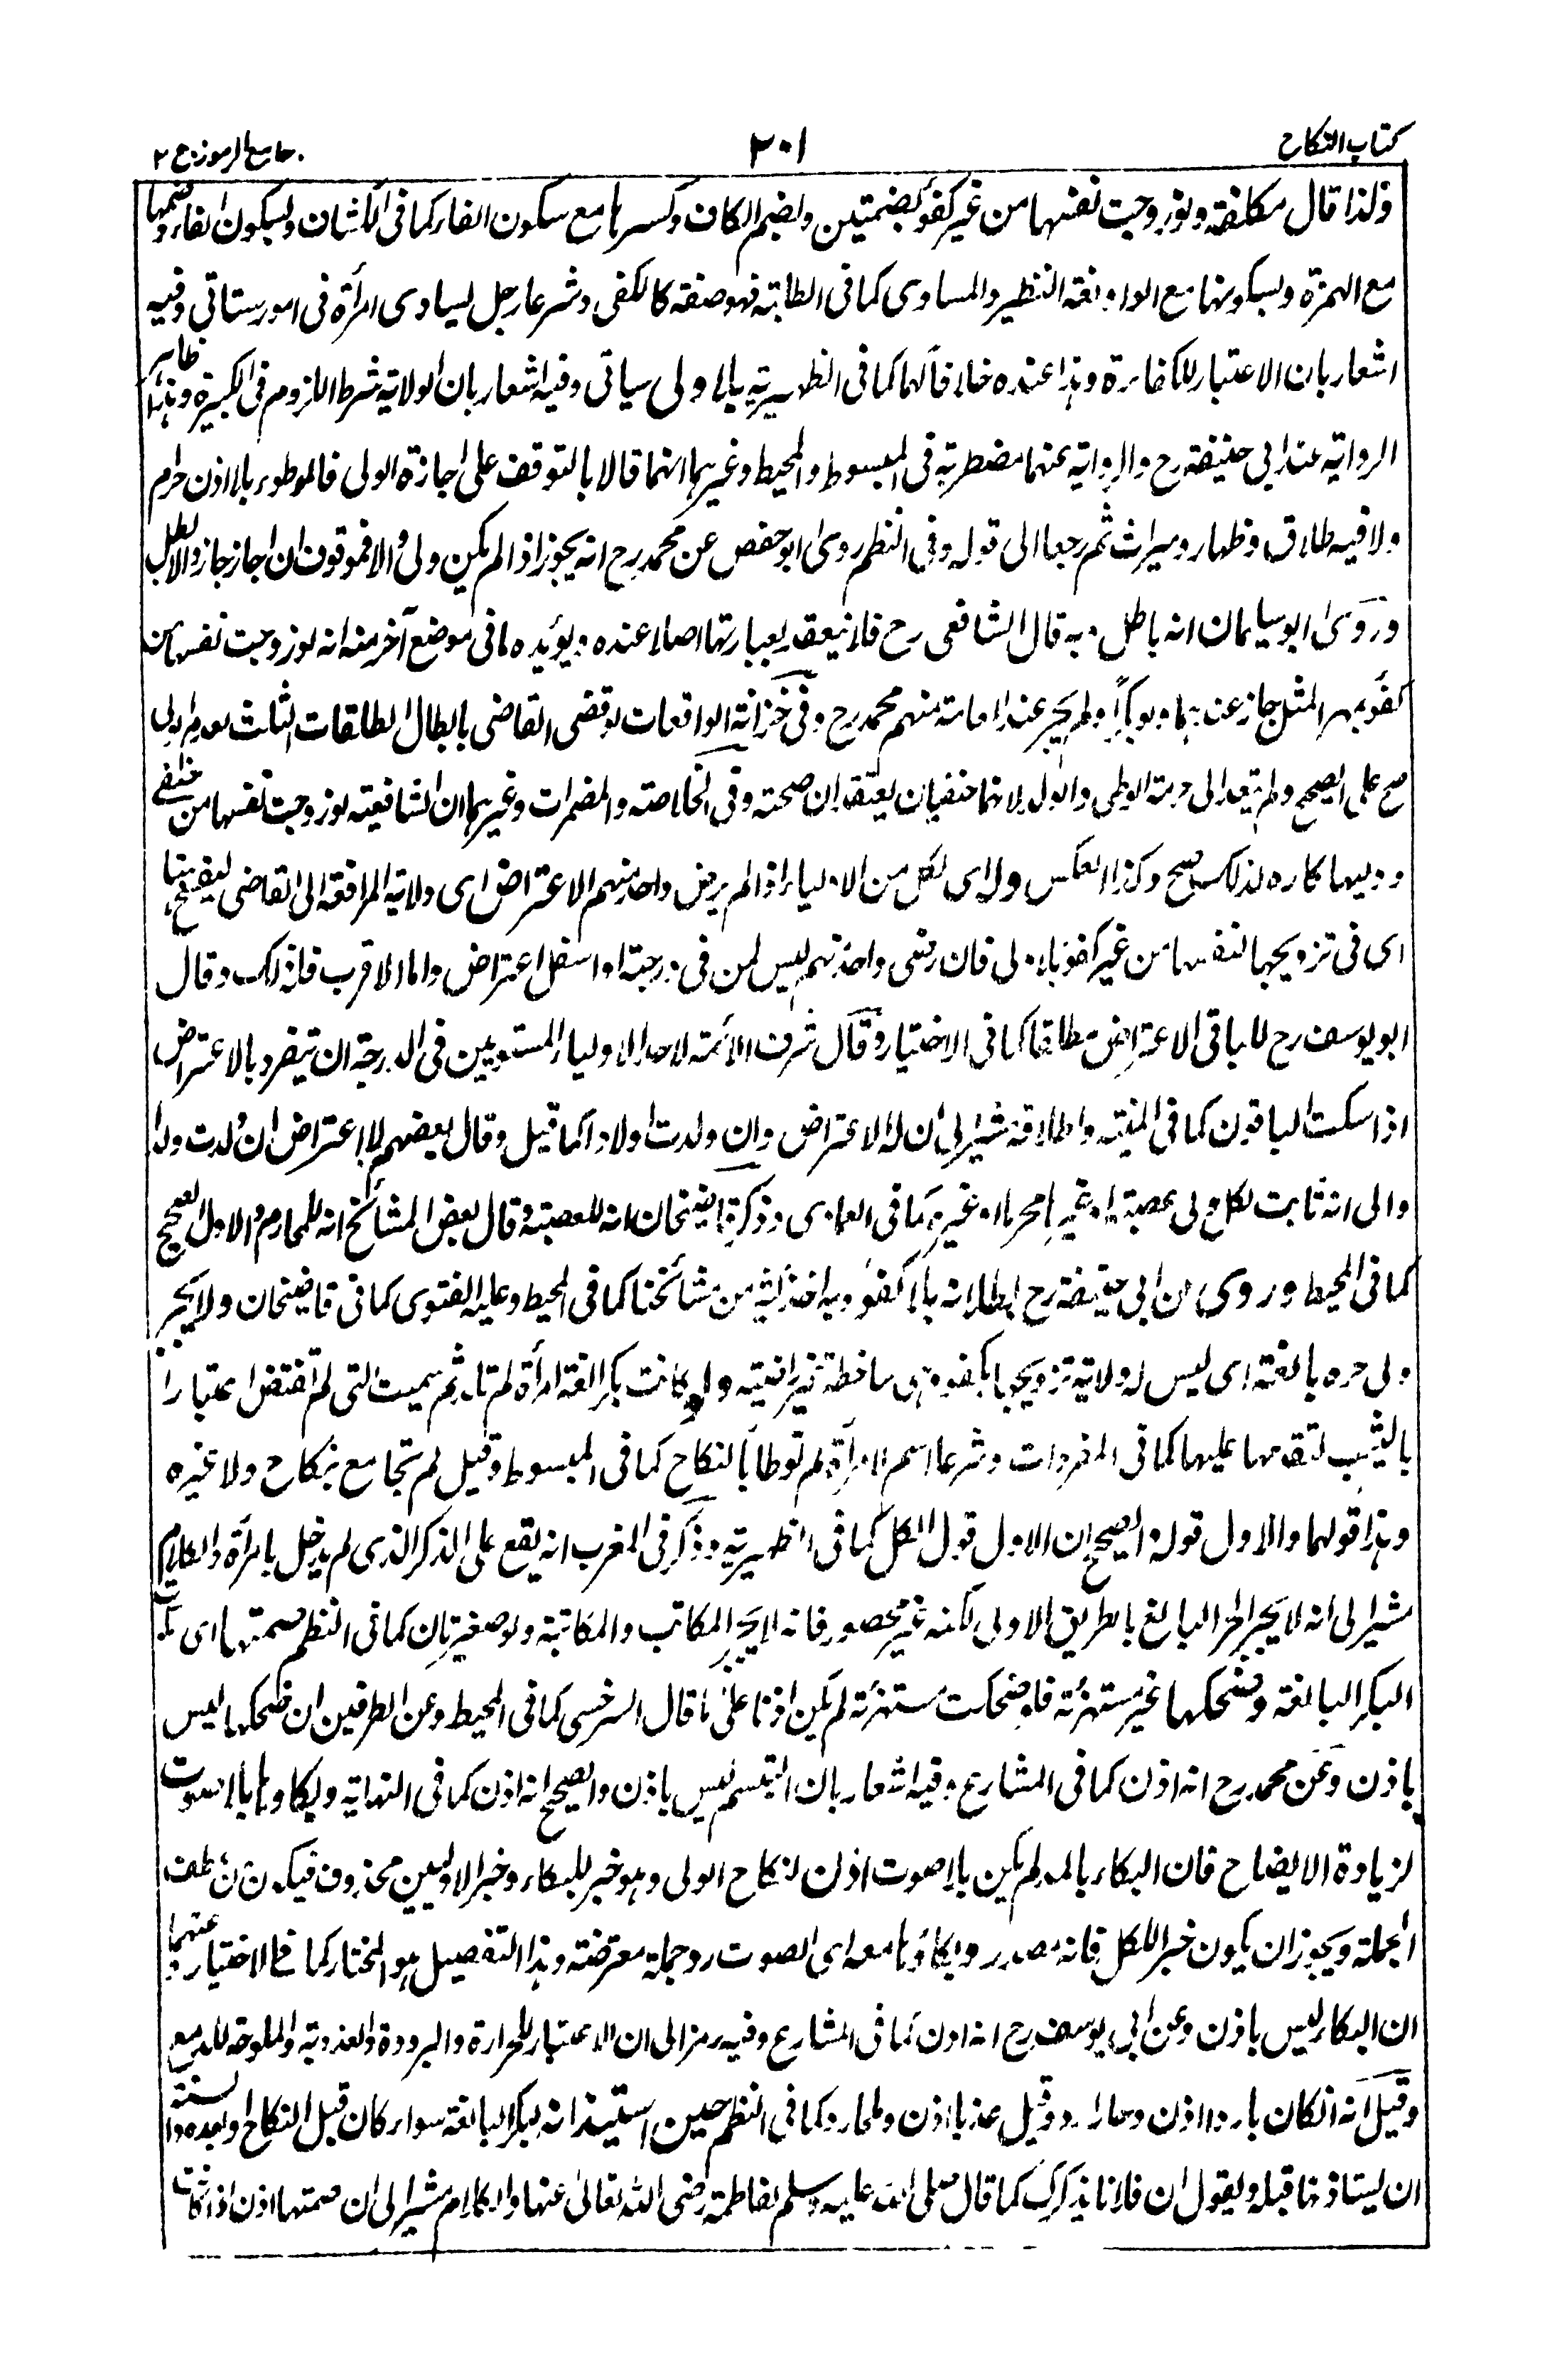 كتاب النكاح
٢٠١
جامع الرموز ج ٢
ولذا قال مكلفة ولو زوجت نفسها من غير كفو بضمتين وبضم الكاف وكسرها مع سكون الفاء كما في الكشاف وبسكون الفاء وضمها
مع الهمزة وبسكونها مع الواو لغة النظير والمساوى كما في الطلبة فهو صفة كالكفى وشرعا رجل يساوى امرأة في امور ستاتي وفيه
اشعار بان الاعتبار للكفاءة وهذا عنده خلافا لهما كما في الظهيرية بلا ولى سياتى وفيه اشعار بان الولاية شرط اللزوم في الكبيرة وهذا ظاهر
الرواية عند ابي حنيفة رح والرواية عنهما مضطربة في المبسوط والمحيط وغيرهما انهما قالا بالتوقف على اجازة الولى فالوطوء بلا اذن حرام
ولا فيه طلاق وظهار وميراث ثم رجعا الى قوله وفي النظم روى ابو حفص عن محمد رح انه يجوز اذا لم يكن ولى والا فموقوف ان اجاز جاز والا بطل
وروى ابو سليمان انه باطل وبه قال الشافعى رح فلا ينعقد بعبارتها اصلا عنده ويؤيده ما في موضع آخر منه انه لو زوجت نفسها من
كفو بمهر المثل جاز عندهما ولو بكرا ولم يجز عند امامة منهم محمد رح وفي خزانة الواقعات لو قضى القاضى بابطال الطلقات الثلث لعدم الولى
صح على الصحيح ولم يتعد الى حرمة الوطى والولد لانهما حنفيان يعتقدان صحته وفي الخلاصة والمضمرات وغيرهما ان الشافعية لو زوجت نفسها من حنفى
ووليها كاره لذلك صح وكذا العكس وله اى لكل من الاولياء اذا لم يرض واحد منهم الاعتراض اى ولاية المرافعة الى القاضى ليفسخ هنا
اى في تزويجها لنفسها من غير كفو بلا ولى فان رضى واحد منهم ليس لمن في درجته او اسفل اعتراض واما الاقرب فله ذلك وقال
ابو يوسف رح للباقي الاعتراض مطلقا كما في الاختيار وقال شرف الائمة لاحد الاولياء المستويين في الدرجة ان يتفرد بالاعتراض
اذا سكت الباقون كما في المنية واطلاقه مشير الى ان له الاعتراض وان ولدت اولادا كما قيل وقال بعضهم لا اعتراض ان ولدت ولدا
والى انه ثابت لكل ولى عصبة او غيره محرم او غيره كما في العمادى وذكر قاضيخان انه للعصبة وقال بعض المشائخ انه للمحارم والاول الصحيح
كما في المحيط وروى عن ابي حنيفة رح ابطاله بلا كفو وبه اخذ كثير من مشائخنا كما في المحيط وعليه الفتوى كما في قاضيخان ولا يجبر
ولى حره بالغة اى ليس له ولاية تزويجها بكفو وهى ساخطة غير راضية ولو كانت بكرا لغة امرأة لم تلد ثم سميت التى لم تفتض اعتبارا
بالثيب لتقدمها عليها كما في المفردات وشرعا اسم لامرأة لم توطأ بالنكاح كما في المبسوط وقيل لم تجامع بنكاح ولا غيره
وهذا قولهما والاول قوله والصحيح ان الاول قول الكل كما في الظهيرية وذكر في المغرب انه يقع على الذكر الذى لم يدخل بامرأة والكلام
مشير الى انه لا يجبر الحر البالغ بالطريق الاولى لكنه غير محصور فانه لا يجبر المكاتب والمكاتبة ولو صغيرتان كما في النظم صمتها اى
البكر البالغة وضحكها غير مستهزئة فلو ضحكت مستهزئة لم يكن اذنا على ما قال السرخسى كما في المحيط وعن الطرفين ان ضحكها ليس
باذن وعن محمد رح انه اذن كما في المشارع وفيه اشعار بان التبسم ليس باذن والصحيح انه اذن كما في النهاية وبكاوها بلا صوت
لزيادة الايضاح فان البكاء بالمد لم يكن بلا صوت اذن لنكاح الولى وهو خبر للبكاء وخبر الاوليين محذوف فيكون من عطف
الجملة ويجوز ان يكون خبرا للكل فانه مصدر وبكاؤها معه اى الصوت رد جملة معترضة وهذا التفصيل هو المختار كما في الاختيار وعنهما
ان البكاء ليس باذن وعن ابي يوسف رح انه اذن كما في المشارع وفيه رمز الى ان الاعتبار للحرارة والبرودة والعذوبة والملوحة للدمع
وقيل انه ان كان باردا اذن وحارا رد وقيل عذبا اذن وملحا رد كما في النظم حين استيذانه للبكر البالغة سواء كان قبل النكاح او بعده والسنة
ان يستاذنها قبله ويقول ان فلانا يذكرك كما قال صلى الله عليه وسلم لفاطمة رضى الله تعالى عنها والكلام مشير الى ان صمتها اذن اذا كانت